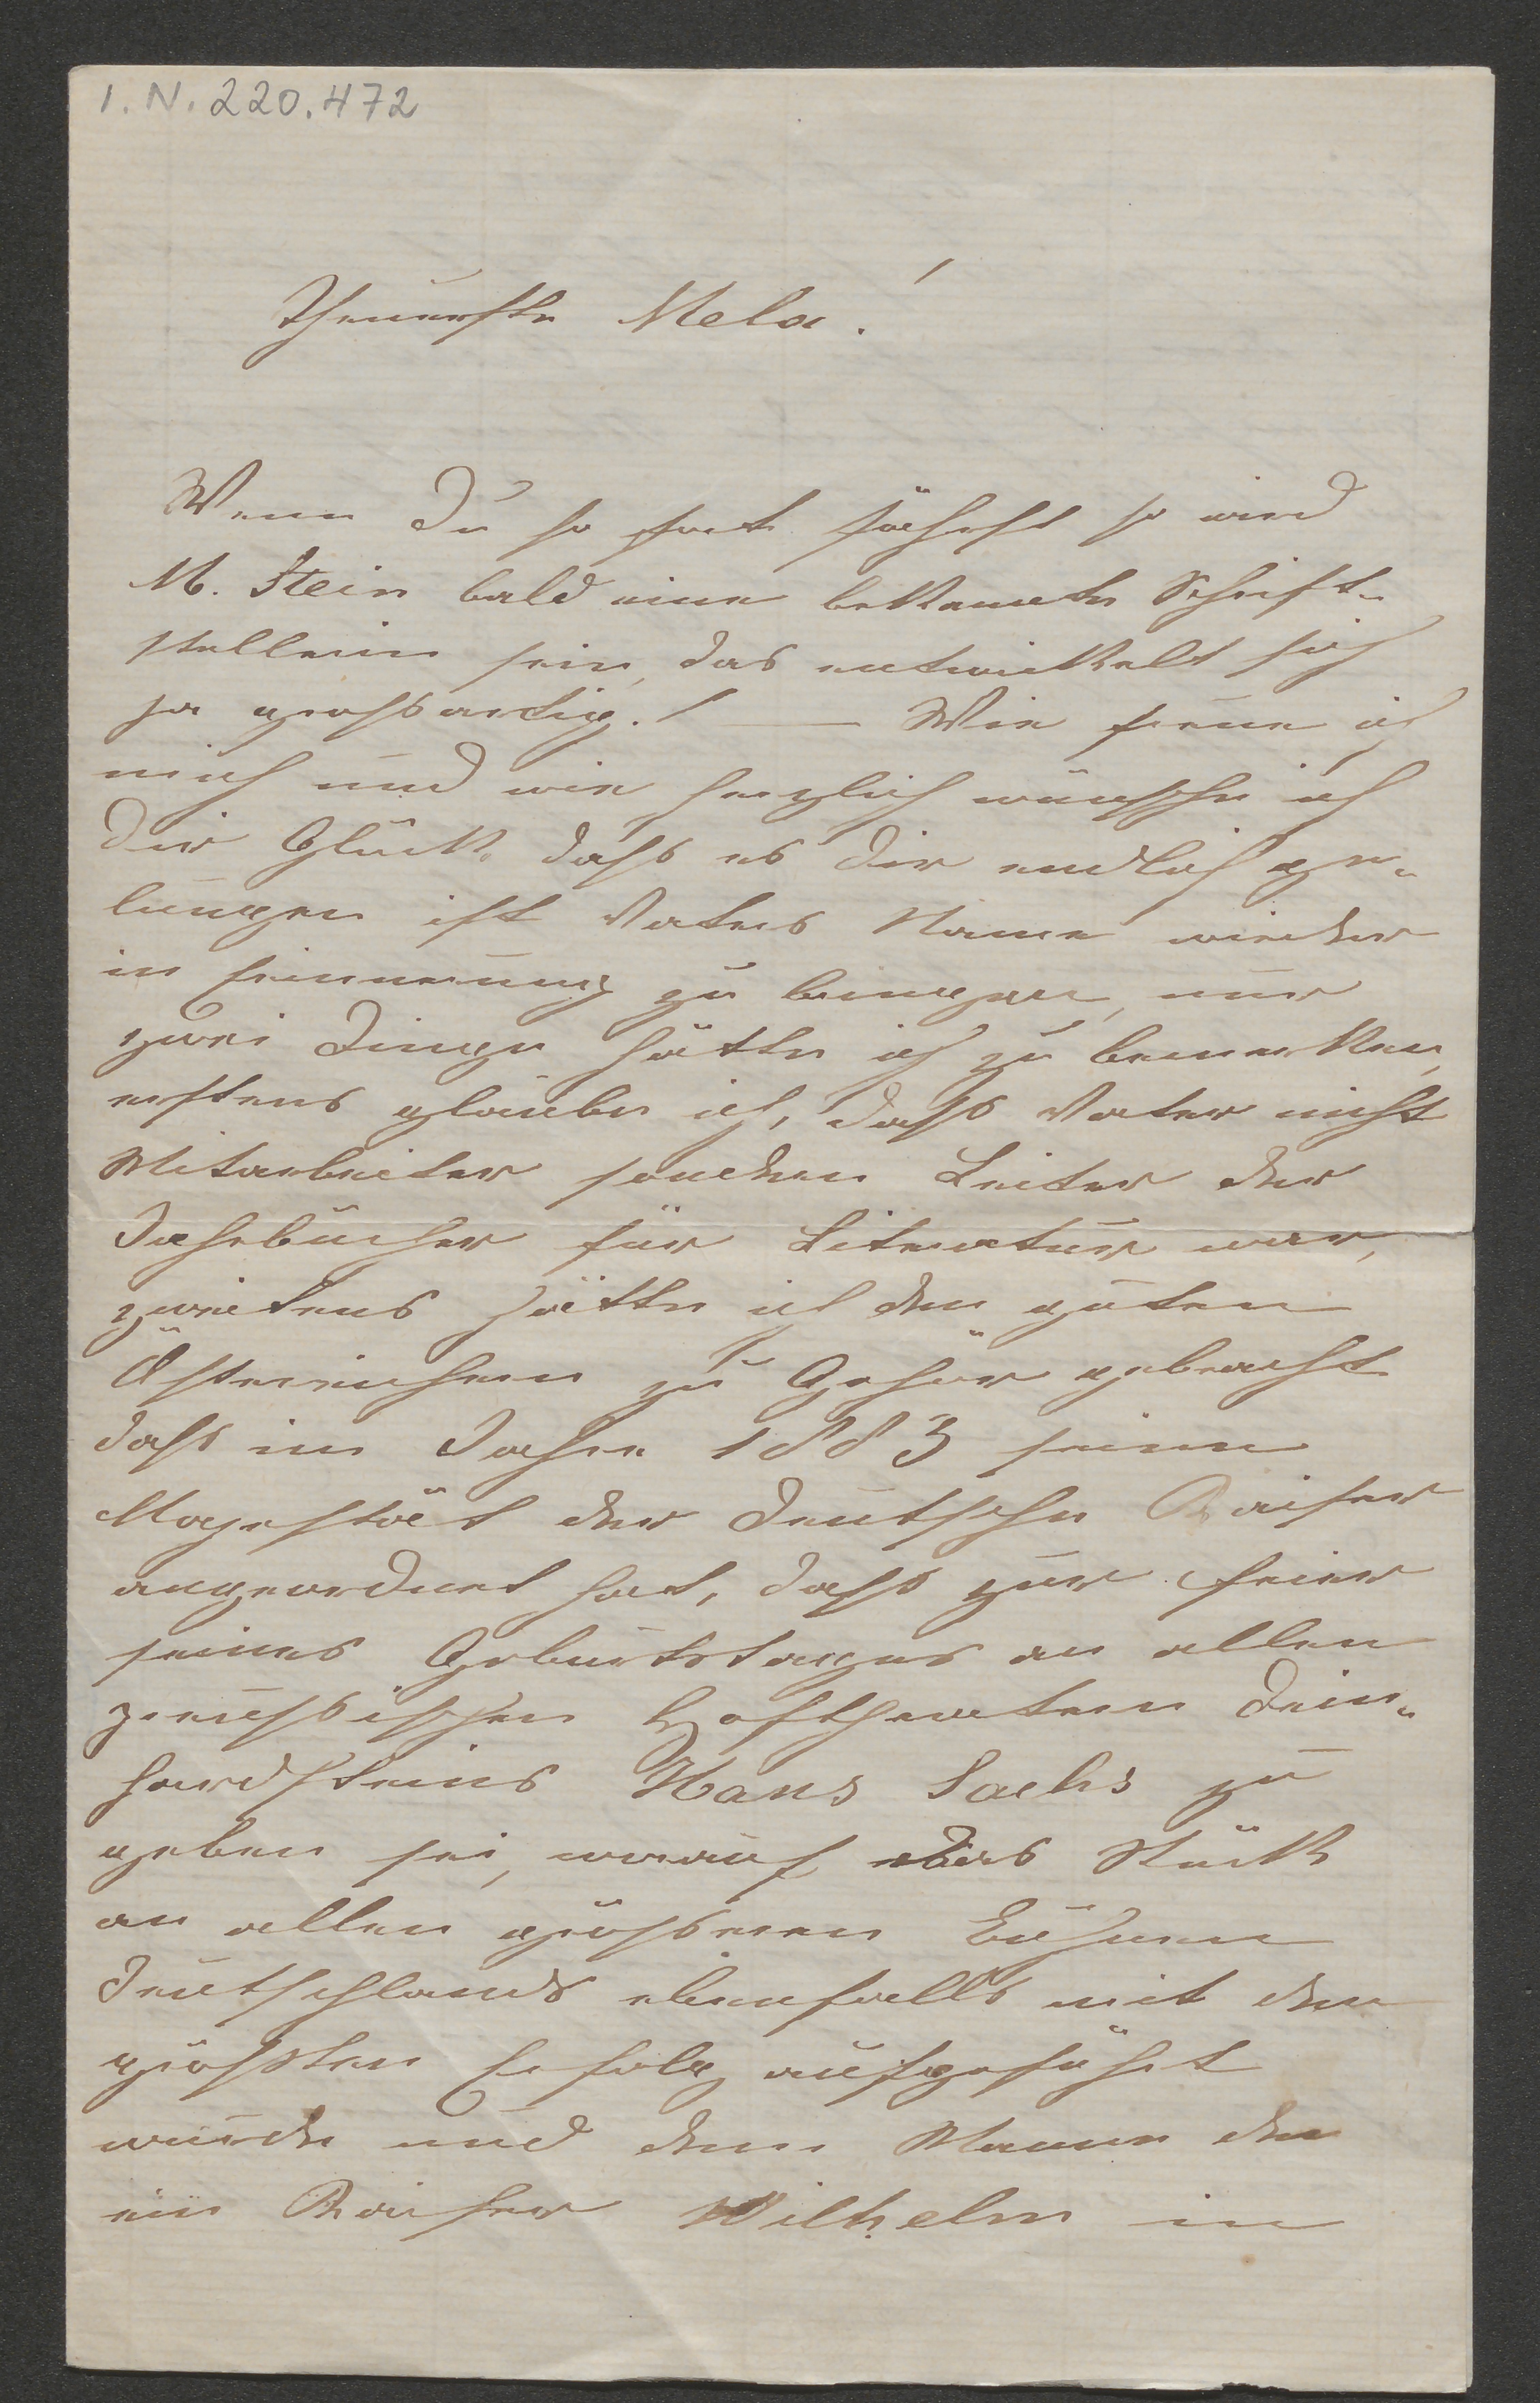 I.N. 220.472
Theuerste Mela!
Wenn Du so fort fährst so wird
M. Stein bald eine bekannte Schrift-
stellerin sein, das entwickelt sich
ja großartig! — Wie freue ich
mich und wie herzlich wünsche ich
Dir Glück, daß es Dir endlich ge-
lungen ist Vaters Name wieder
in Erinnerung zu bringen, nur
zwei Dinge hätte ich zu bemerken,
erstens glaube ich, daß Vater nicht
Mitarbeiter sondern Leiter der
Jahrbücher für Literatur war,
zweitens hätte ich den guten
Östereichern zu Gehör gebracht
daß im Jahre 1883 seine
Majestät der deutsche Kaiser
angeordnet hat, daß zur Feier
seines Geburtstages an allen
preußischen Hoftheatern Dein-
hardsteins Hans Sachs zu
geben sei, worauf das Stück
an allen größeren Bühnen
Deutschlands ebenfalls mit dem
größten Erfolg aufgeführt
wurde und dem Manne den
ein Kaiser Wilhelm in